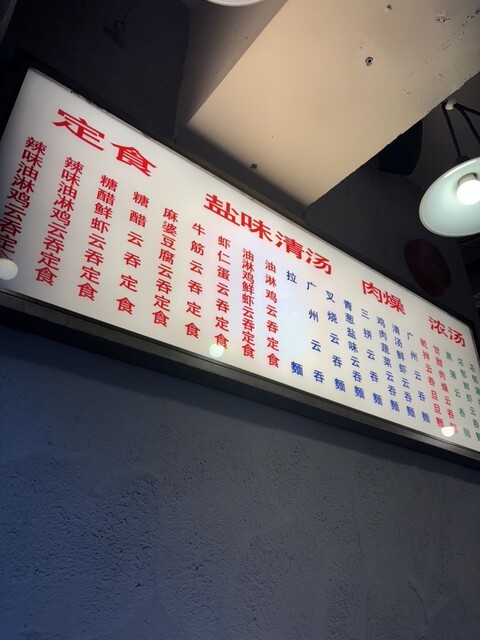 定食
盐味清汤
肉燥
浓汤
辣味油淋鸡云吞定
辣味油淋鸡云吞定食
糖醋鲜虾云吞定食
糖醋云吞定食
麻婆豆腐云吞定食
牛筋云吞定食
虾仁蛋云吞定食
油淋鸡鲜虾云吞定食
油淋鸡云吞定食
拉麵
广州云吞
叉烧云吞麵
青葱盐味云吞麵
三拼云吞麵
鸡肉蔬菜云吞麵
清汤鲜虾云吞麵
广州云吞麵